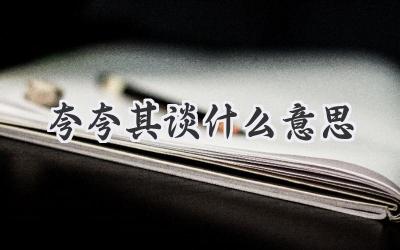 夸夸其谈什么意思